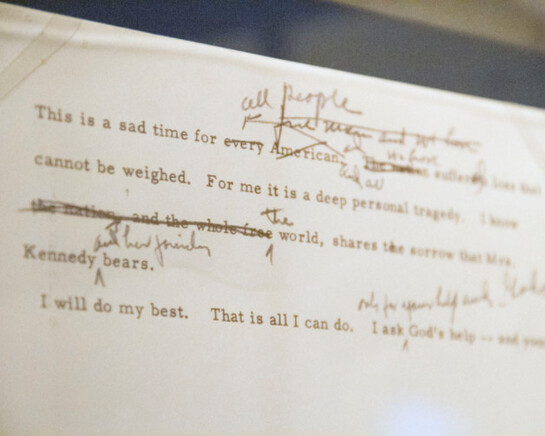 all people
free men and
This is a sad time for every American. The nation suffered loss that
we have
cannot be weighed. For me it is a deep personal tragedy. I know
the
the nation, and the whole free world, shares the sorrow that Mrs.
and her family
Kennedy bears.
only for your help and
I will do my best. That is all I can do. I ask God's help -- and your